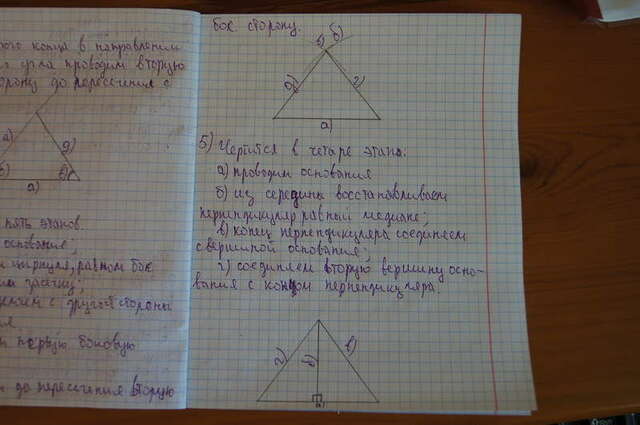 ого конца в направлении
угла проводим вторую
орону до пересечения с
а)
д)
б)
в)
а)
пять этапов.
основание;
циркуля, равном бок.
им засечку;
с другой стороны
ия.
первую боковую
до пересечения вторую
бок. сторону.
в)
б)
б)
г)
а)
5) Чертится в четыре этапа:
а) проводим основания
б) из середины восстанавливаем
перпендикуляр равный медиане;
в) конец перпендикуляра соединяем
с вершиной основания;
г) соединяем вторую вершину осно-
вания с концом перпендикуляра.
г)
б)
в)
а)